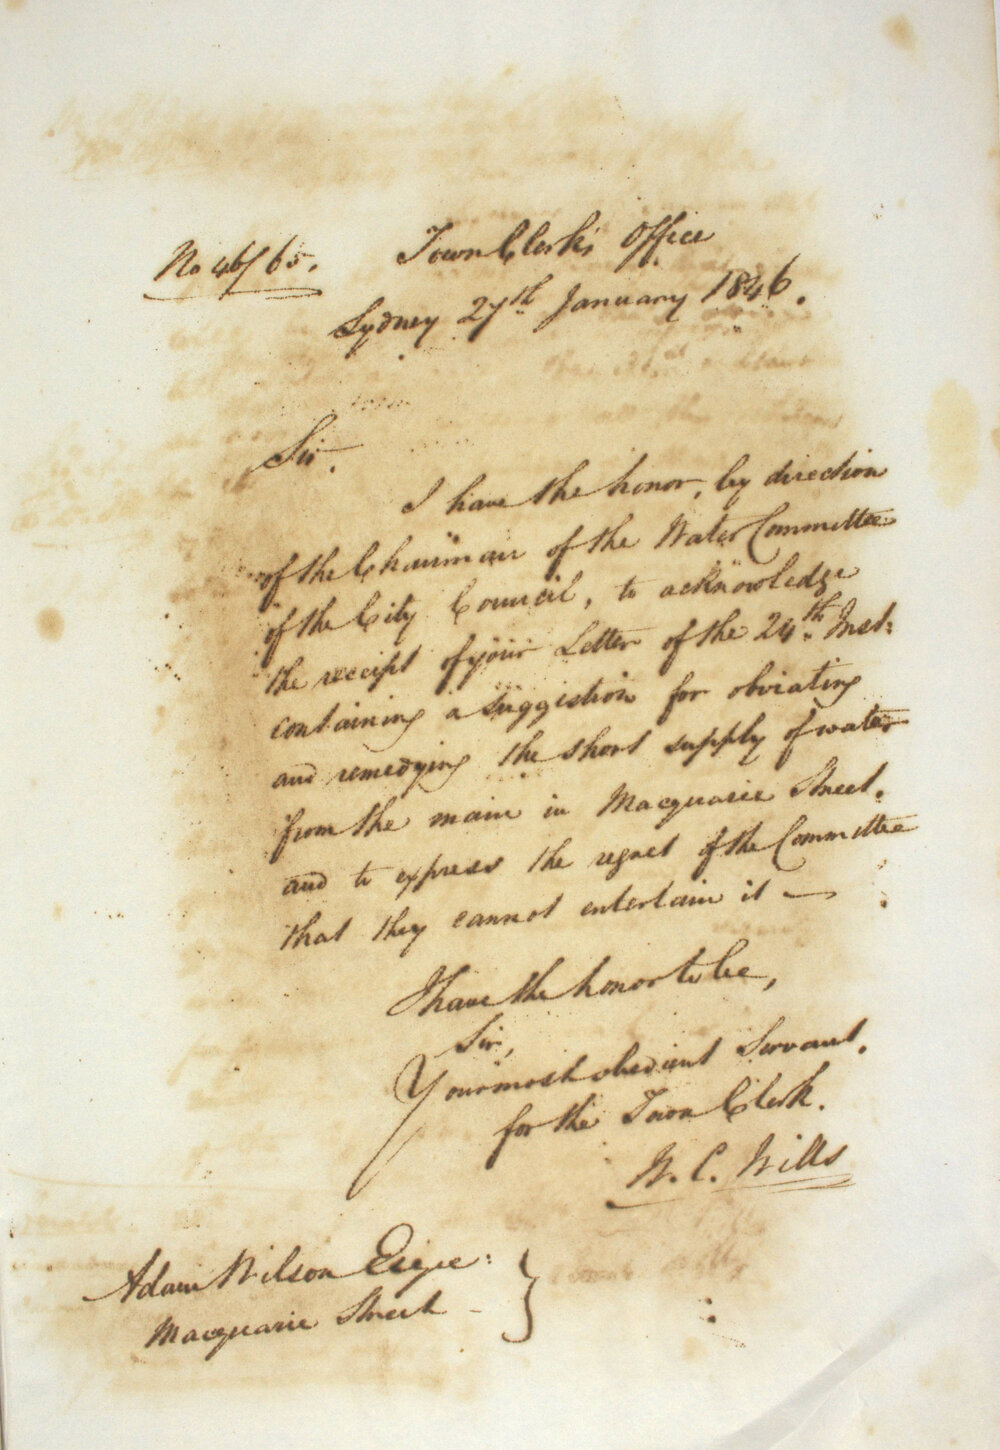 No 46/65. Town Clerk's Office
Sydney 27th January 1846.
Sir.
I have the honor, by direction
of the Chairman of the Water Committee
of the City Council, to acknowledge
the receipt of your Letter of the 24th Inst:
containing a suggestion for obviating
and remedying the short supply of water
from the main in Macquarie Street.
and to express the regret of the Committee
that they cannot entertain it —
I have the honor to be,
Sir,
Your most obedient Servant.
for the Town Clerk.
W. C. Wills
Adam Wilson Esqre:
Macquarie Street -